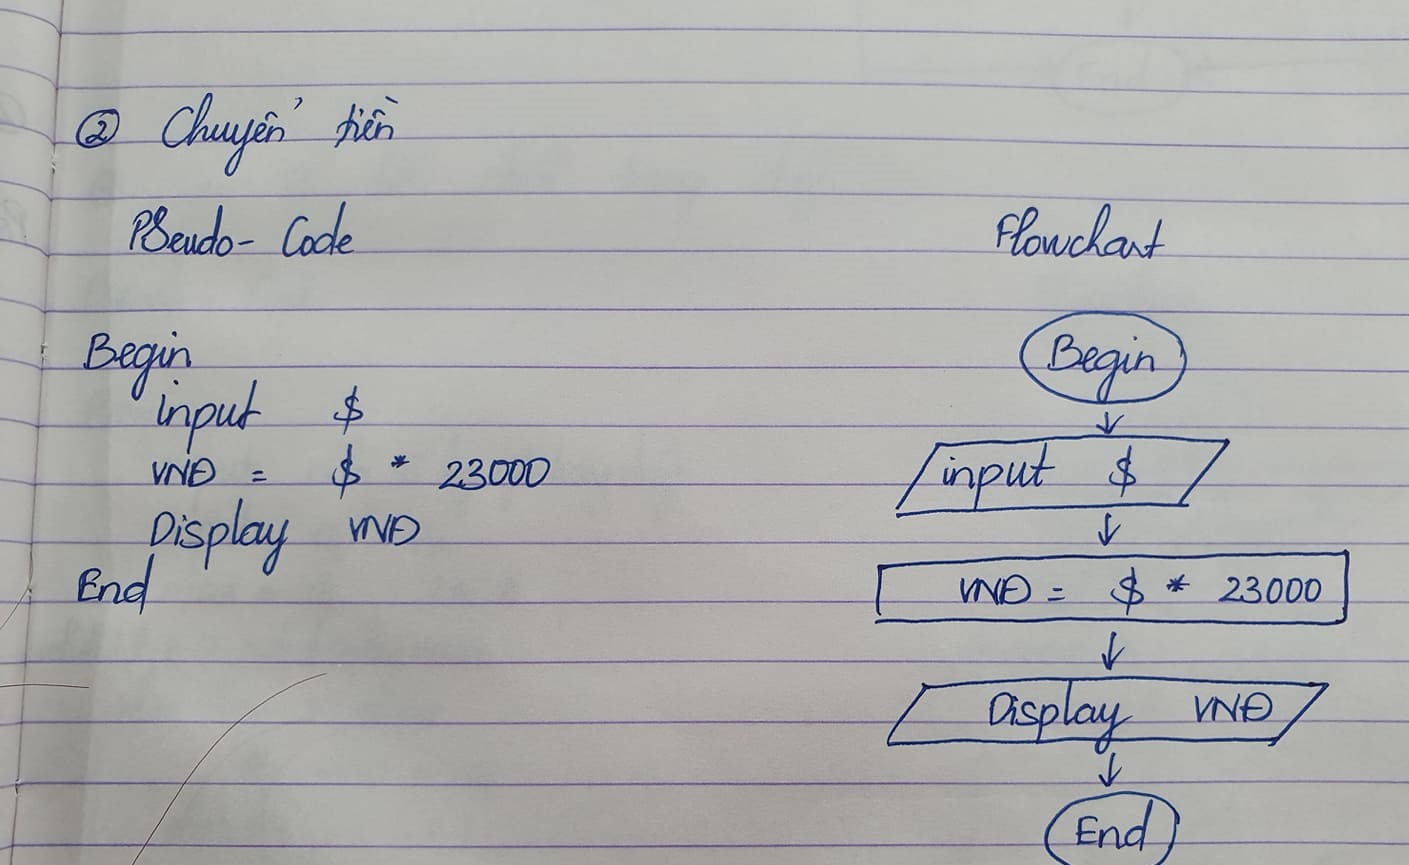 ② Chuyển tiền
PSeudo-Code
Begin
input $
VNĐ = $ * 23000
Display VNĐ
End
Flowchart
Begin
input $
VNĐ = $ * 23000
Display VNĐ
End